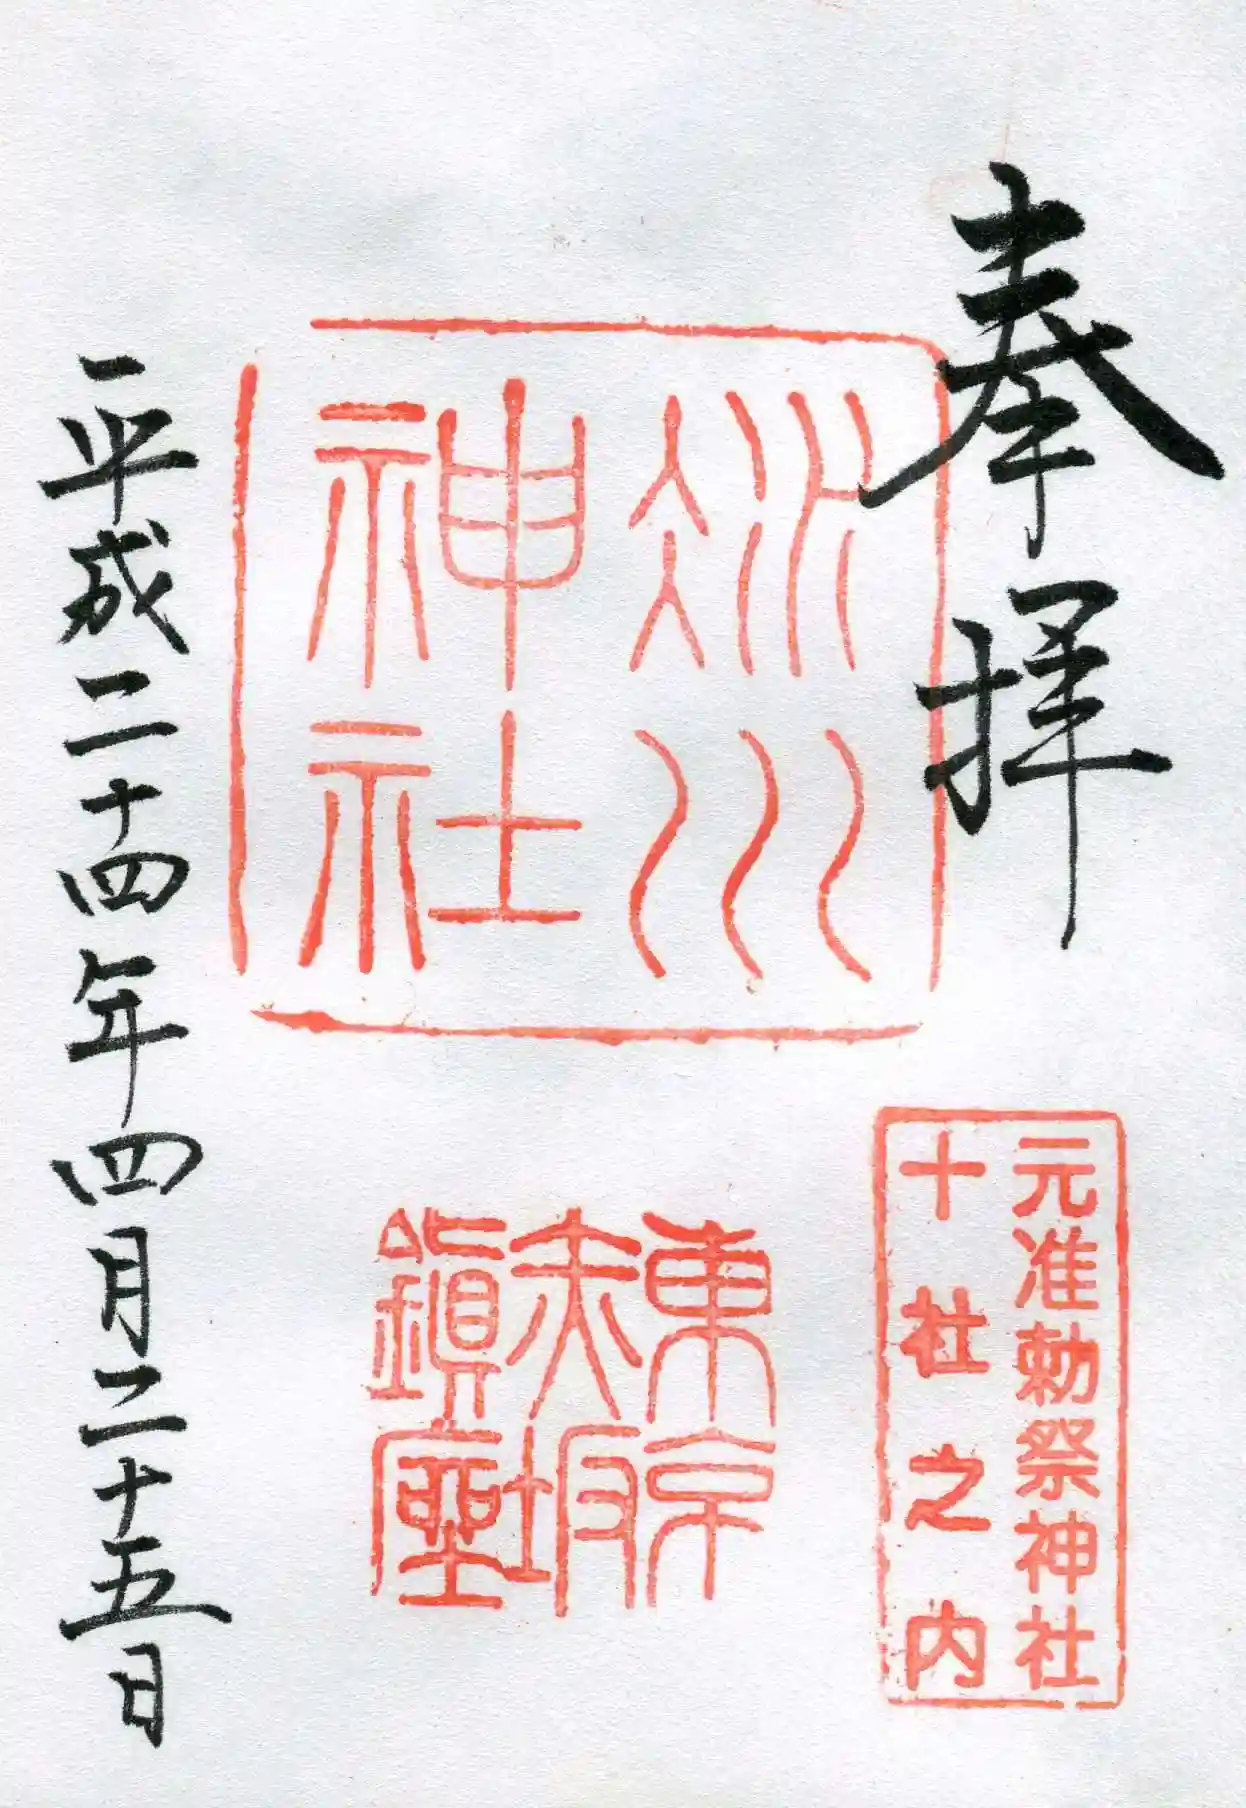 奉拝
冰川
神社
元准勅祭神社
十社之内
東京
赤坂
鎭座
平成二十四年四月二十五日